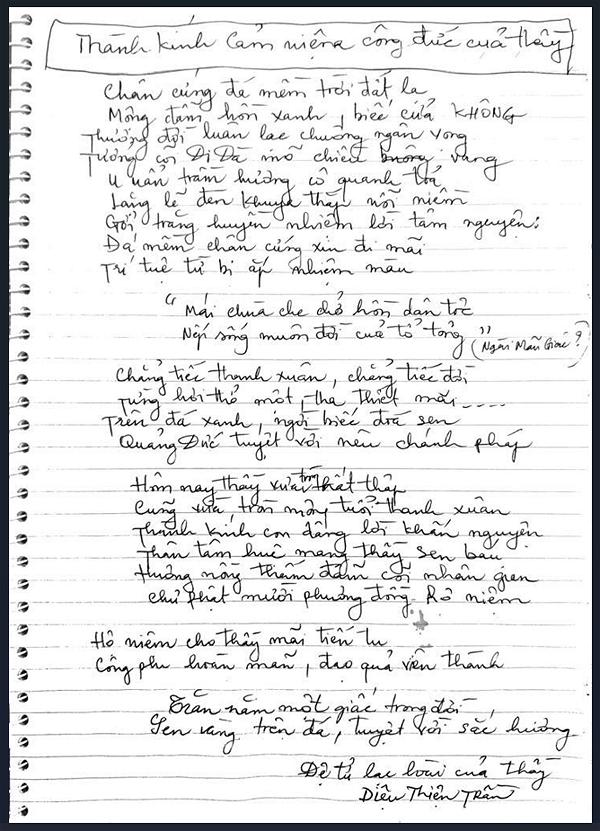 Thành kính cảm niệm công đức của thầy
Chân cứng đá mềm trời đất la
Mông đậm hồn xanh, biếc cửa KHÔNG
Thương đời luân lạc chuông ngân vọng
Tưởng cõi Di Đà mõ chiều buông vang
U uẩn trầm hương cô quạnh toả
Lặng lẽ đèn khuya thắp nỗi niềm
Gởi trăng huyền nhiệm lời tâm nguyện:
Đá mềm chân cứng xin đi mãi
Trí tuệ từ bi ắp nhiệm mầu
"Mái chùa che chở hồn dân tộc
Nếp sống muôn đời của tổ tông" (Ngài Mãn Giác?)
Chẳng tiếc thanh xuân, chẳng tiếc đời
Từng hơi thở một, tha thiết mãi ....
Trên đá xanh, ngời biếc đoá sen
Quảng Đức tuyệt vời nêu chánh pháp
Hôm nay thầy vừa tròn thất thập
Cũng vừa tròn mộng tuổi thanh xuân
Thành kính con dâng lời khấn nguyện
Thân tâm huệ mạng thầy sen báu
Hương nồng thắm đẫm cõi nhân gian
Chư phật mười phương đồng hộ niệm
Hộ niệm cho thầy mãi tiến tu
Công phu hoàn mãn, đạo quả viên thành
Trăm năm một giấc trong đời,
Sen vàng trên đá, tuyệt vời sắc hương
Đệ tử lạc loài của thầy
Diệu Thiện Trần